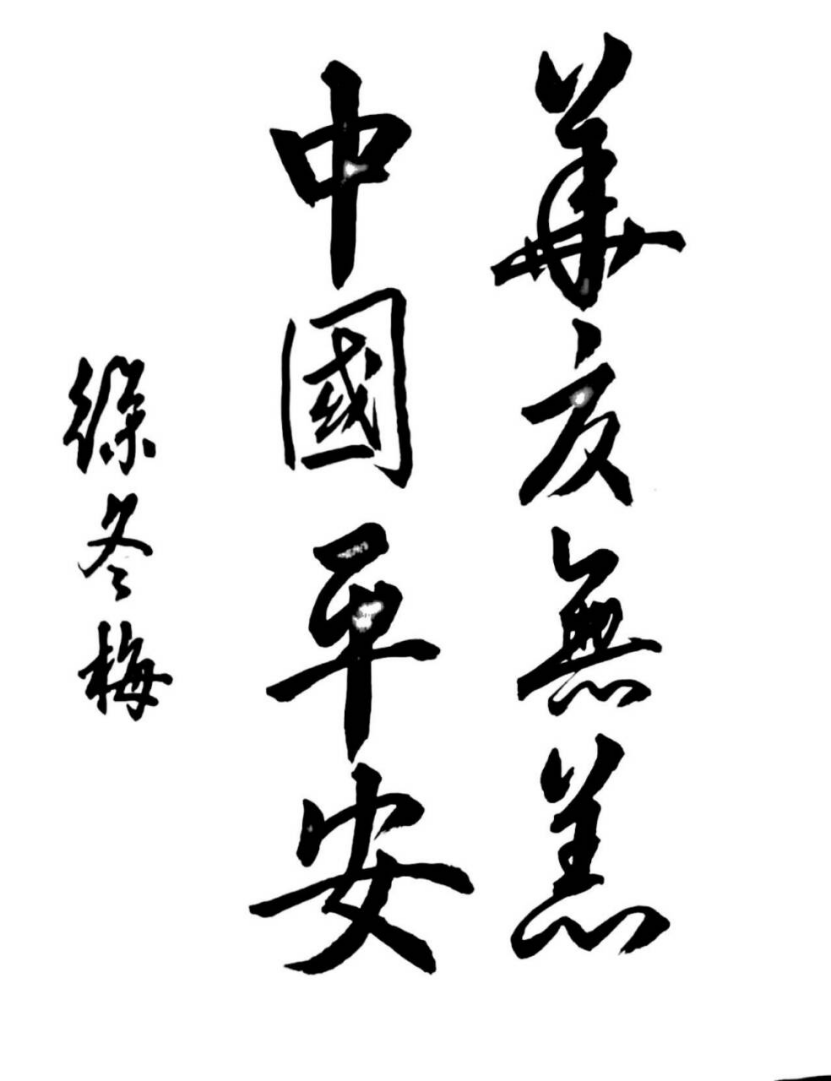 華夏無恙
中國平安
徐冬梅